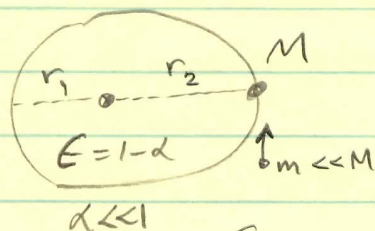 M
r₁ r₂
ϵ = 1-α
m << M
α<<1